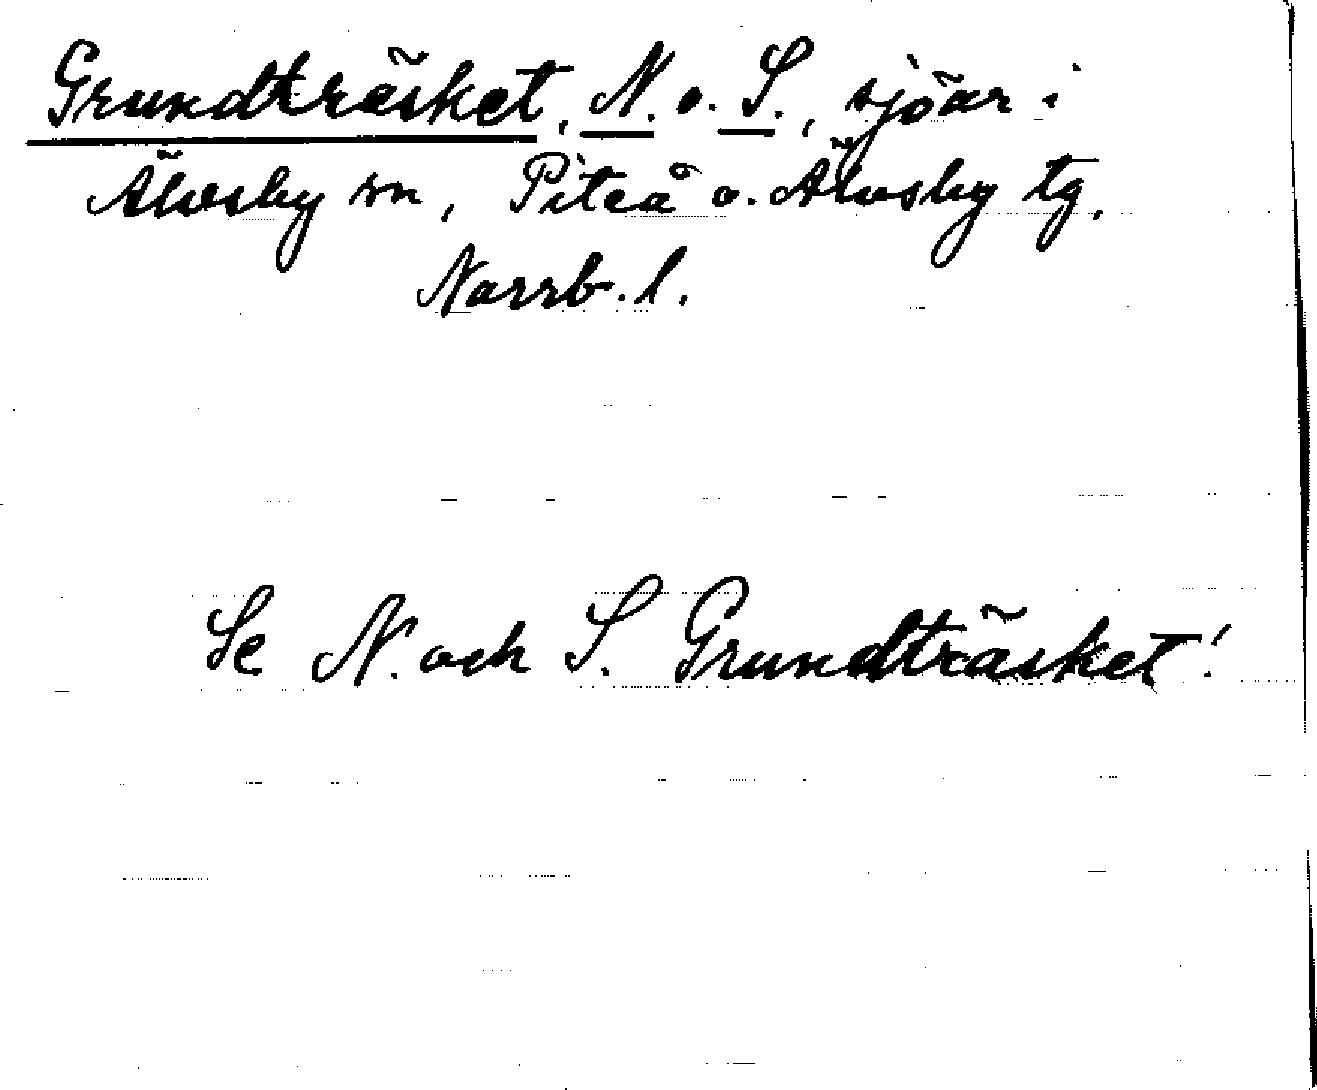 Grundträsket, N. o. S., sjöar i
Älvsby sn, Piteå o. Älvsby tg,
Norrb. l.
Se N. och S. Grundträsket!